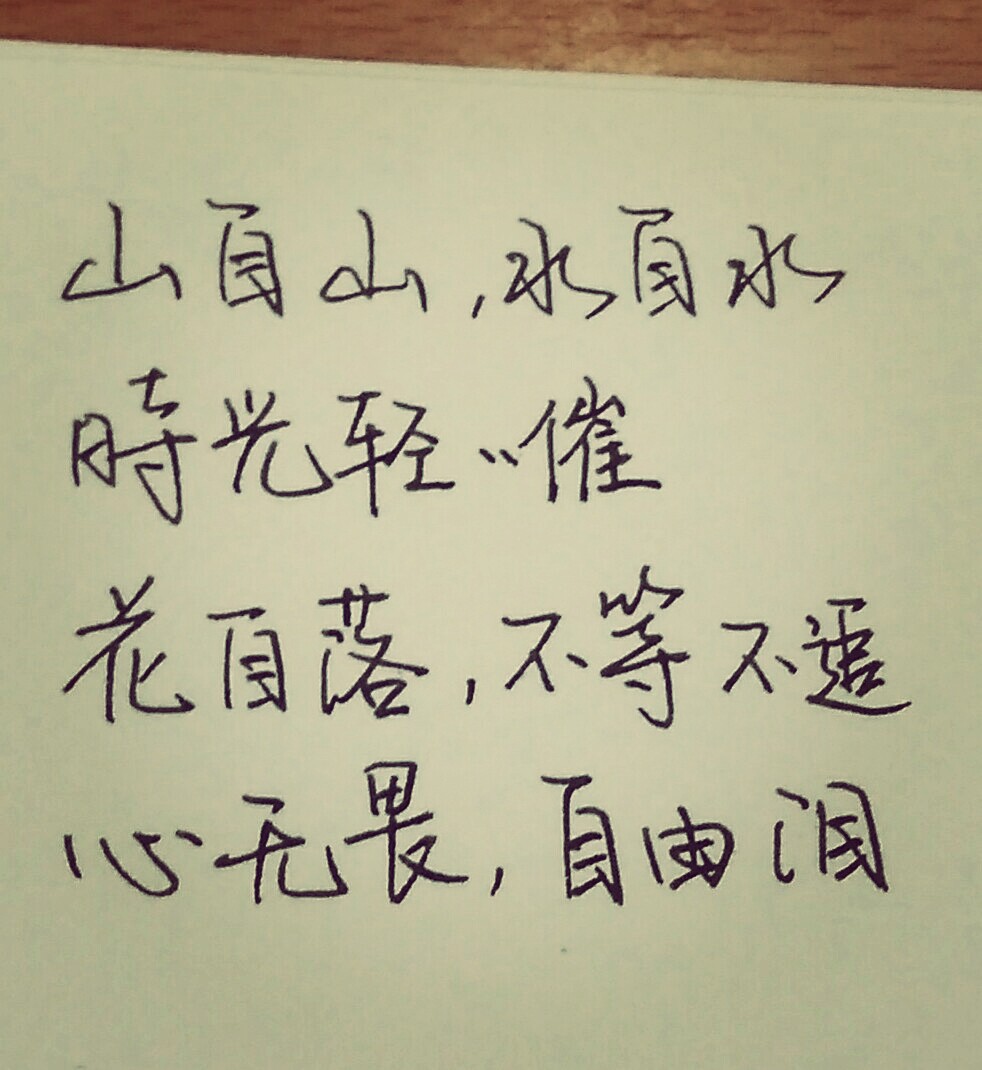 山自山,水自水
時光轻轻催
花自落,不等不追
心无畏,自由泪